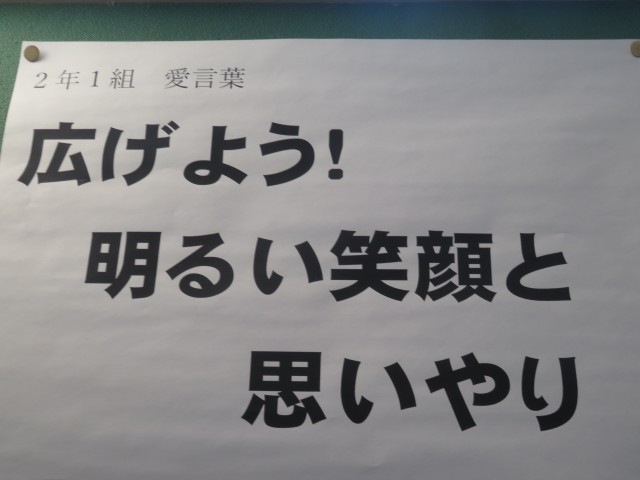 ２年１組　愛言葉
広げよう!
明るい笑顔と
思いやり